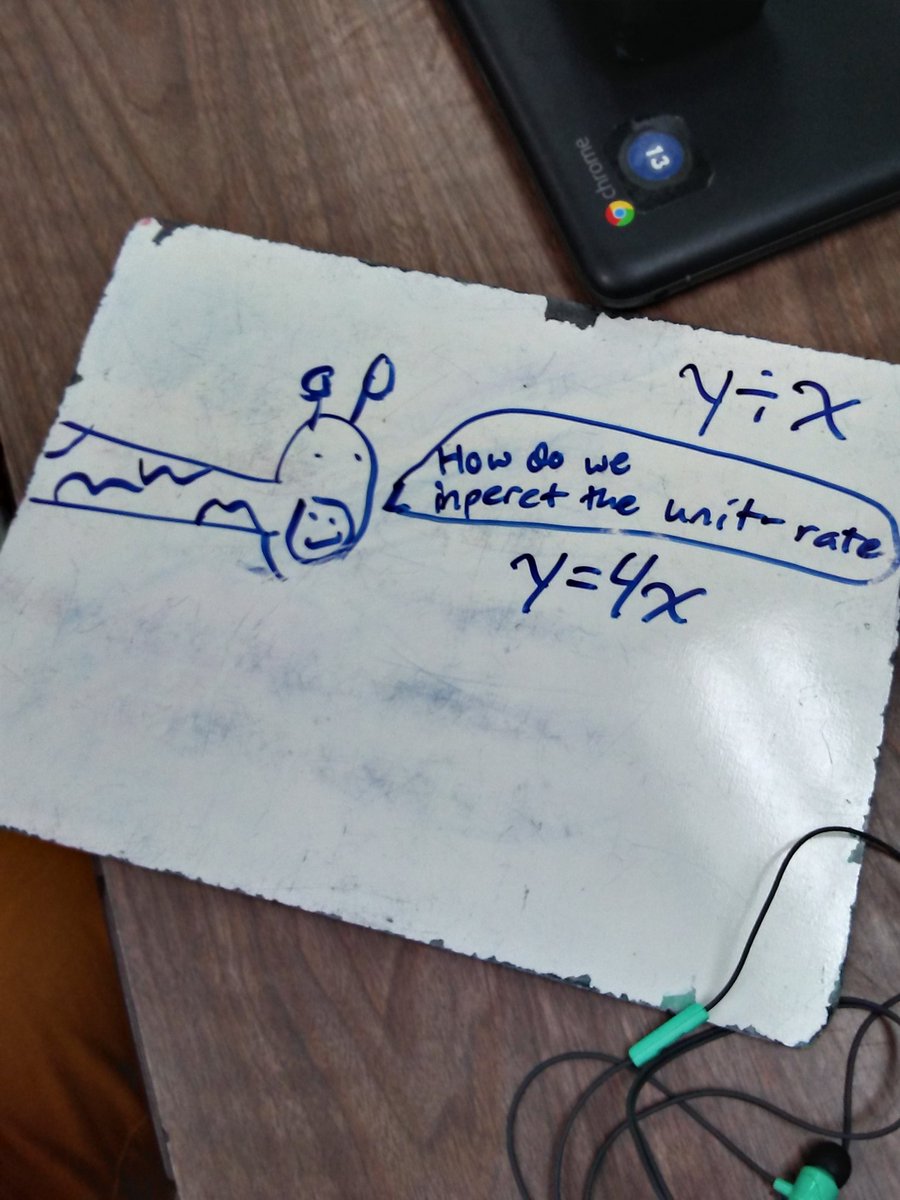 13
chrome
y÷x
How do we
inperet the unit rate
y=4x